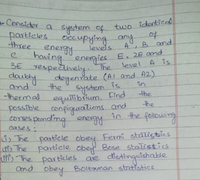 Consider a system of two identical
particles occupying any of
three energy levels A, B and
C having energies E, 2E and
3E respectively. The level A is
doubly degenerate (A1 and A2)
and the system is in
thermal equilibrium. Find the
possible configurations and the
corresponding energy in the following
cases:
(i) The particle obey Fermi statistics
(ii) The particle obey Bose statistics
(iii) The particles are distinguishable
and obey Boltzman statistics